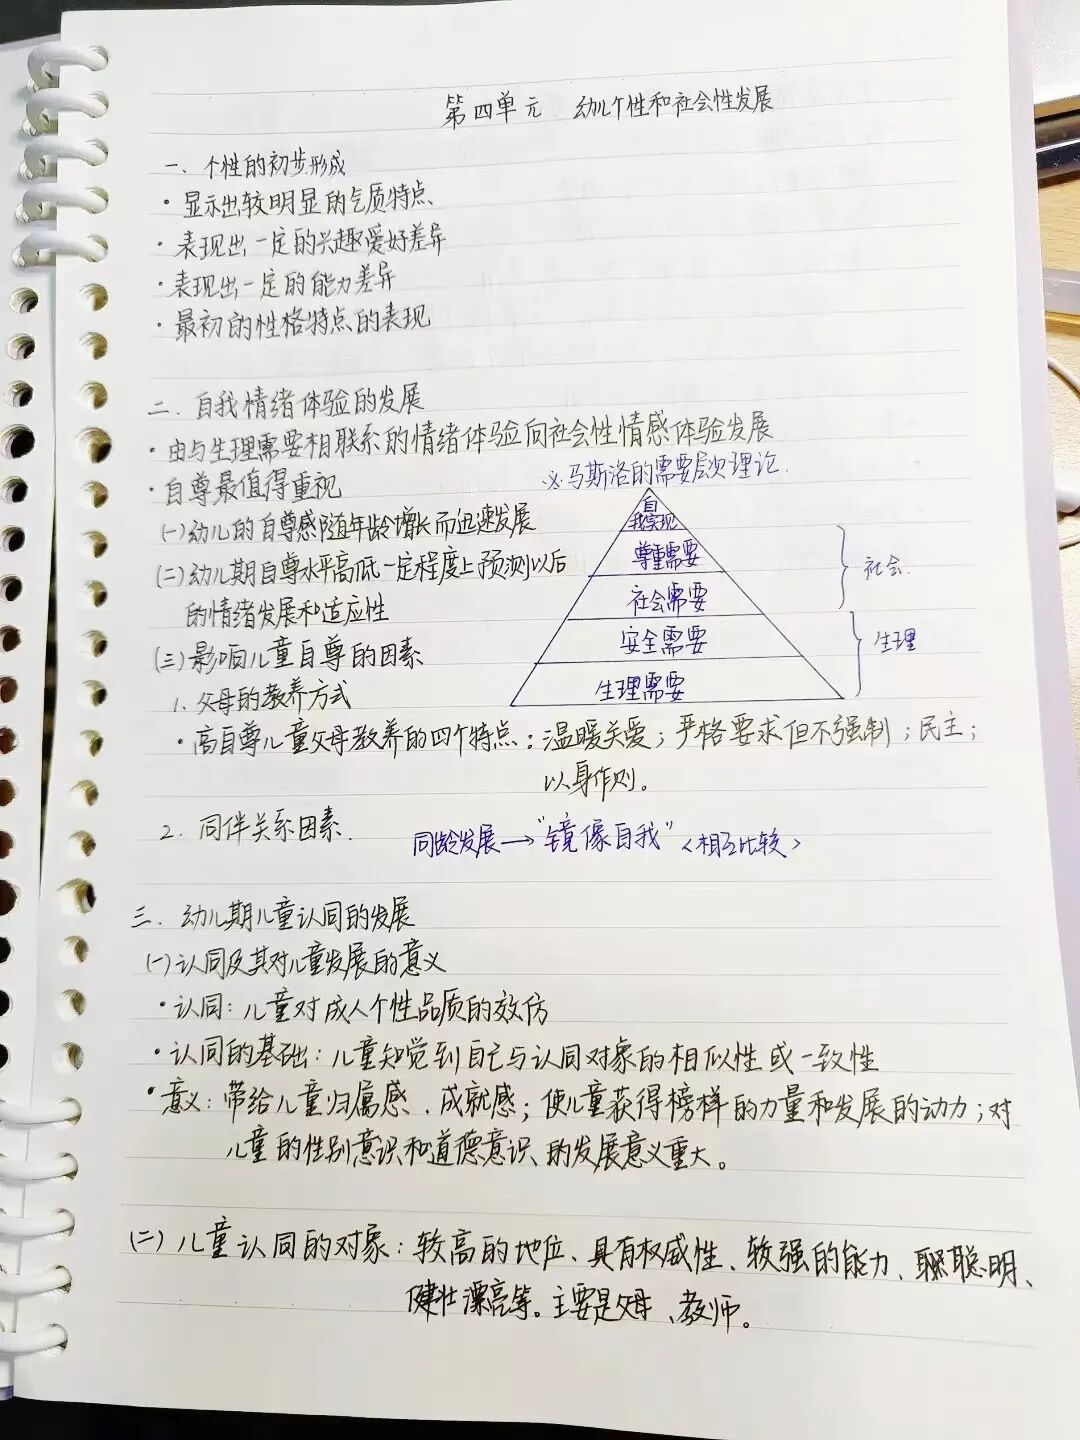 第四单元 幼儿个性和社会性发展
一. 个性的初步形成
·显示出较明显的气质特点
·表现出一定的兴趣爱好差异
·表现出一定的能力差异
·最初的性格特点的表现
二. 自我情绪体验的发展
·由与生理需要相联系的情绪体验向社会性情感体验发展
·自尊最值得重视
※马斯洛的需要层次理论.
自我实现
尊重需要
社会需要
安全需要
生理需要
社会.
生理
(一)幼儿的自尊感随年龄增长而迅速发展
(二)幼儿期自尊水平高低一定程度上预测以后
的情绪发展和适应性
(三)影响儿童自尊的因素
1. 父母的教养方式
·高自尊儿童父母教养的四个特点：温暖关爱；严格要求但不强制；民主；
以身作则。
2. 同伴关系因素.
同龄发展→"镜像自我"<相互比较>
三. 幼儿期儿童认同的发展
(一)认同及其对儿童发展的意义
·认同：儿童对成人个性品质的效仿
·认同的基础：儿童知觉到自己与认同对象的相似性或一致性
·意义：带给儿童归属感、成就感；使儿童获得榜样的力量和发展的动力；对
儿童的性别意识和道德意识的发展意义重大。
(二)儿童认同的对象：较高的地位、具有权威性、较强的能力、聪明、
健壮漂亮等。主要是父母、教师。